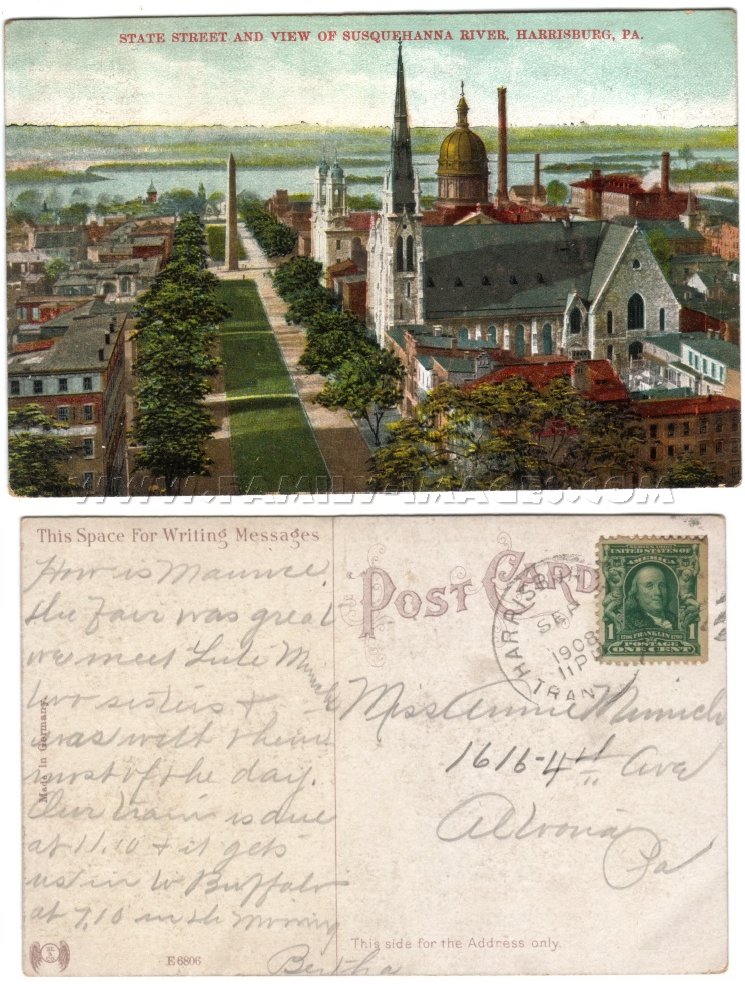 STATE STREET AND VIEW OF SUSQUEHANNA RIVER, HARRISBURG, PA.
WWW.FAMILY-IMAGES.COM
This Space For Writing Messages
How is Maurice.
the Fair was great
we meet Lule Minich
two sisters +
was with them
most of the day.
Our train is due
at 11.10 + it gets
us in to Buffalo
at 7.10 in the Morning
Bertha
Made in Germany.
E 6806
POST CARD
HARRISB
SEP
1908
11 P
TRAN
SERIES 1902
UNITED STATES OF AMERICA
1 1
1706 FRANKLIN 1790
POSTAGE
ONE CENT
Miss Annie Minich
1616-4th Ave
Altoona
Pa
This side for the Address only.